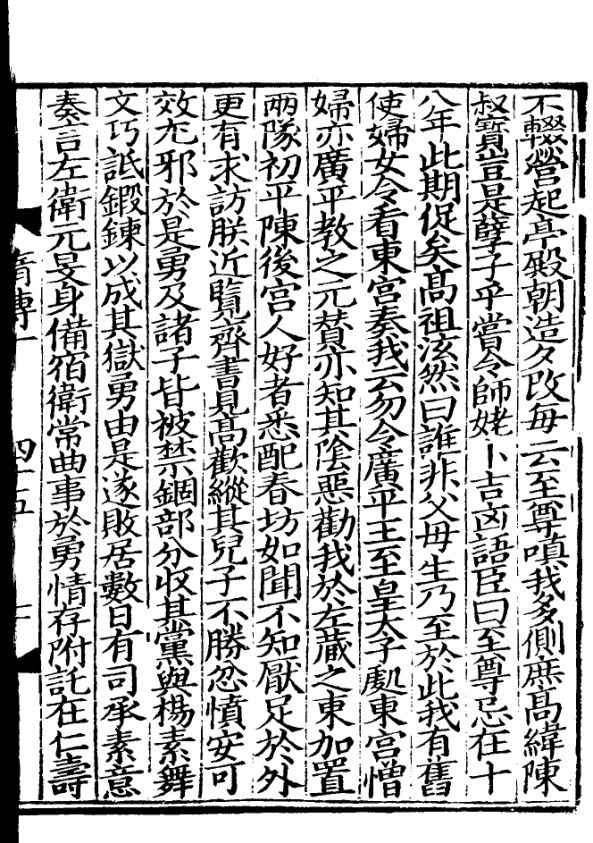 不輟營起亭殿朝造夕改毎云至尊嗔我多側庶髙緯陳
叔寶豈是孽子乎嘗令師姥卜吉凶語臣曰至尊忌在十
八年此期促矣髙祖泫然曰誰非父母生乃至於此我有舊
使婦女令看東宮奏我云勿令廣平王至皇太子䖏東宮憎
婦亦廣平教之元贊亦知其陰惡勸我於左藏之東加置
兩隊初平陳後宮人好者悉配春坊如聞不知厭足於外
更有求訪朕近覽齊書見髙歡縱其兒子不勝忿憤安可
效尤邪於是勇及諸子皆被禁錮部分收其黨與楊素舞
文巧詆鍛鍊以成其獄勇由是遂敗居數日有司承素意
奏言左衛元旻身備宿衛常曲事於勇情存附託在仁壽